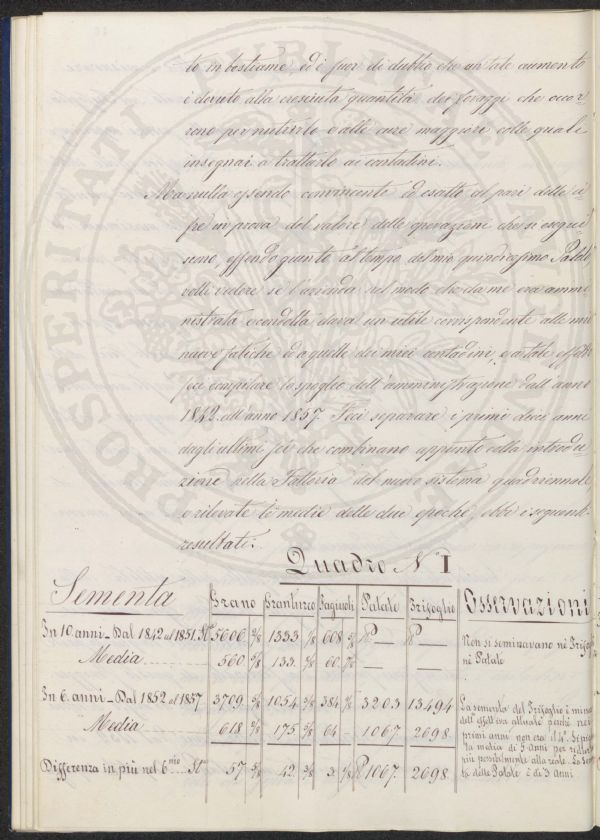 to in bestiame, ed è fuor di dubbio che un tale aumento
è dovuto alla cresciuta quantità dei foraggi che occor-
rono per nutrirlo e alle cure maggiori colle quali
insegnai a trattarlo ai contadini.
Ma nulla essendo convincente ed esatto al pari delle ci-
fre in prova del valore delle operazioni che si esegui-
scono, essendo giunto al tempo del mio quindicesimo
volli vedere se l'azienda nel modo che da me era ammi-
nistrata e condotta dava un utile corrispondente alle mie
nuove fatiche ed a quelle dei miei contadini, e a tale effetto
feci compilare lo spoglio dell'amministrazione dall'anno
1842 all'anno 1857. Feci separare i primi dieci anni
dagli ultimi sei che combinano appunto colla introdu-
zione nella Fattoria del nuovo sistema quadriennale
e rilevate le medie delle due epoche, ebbi i seguenti
resultati:
Quadro N° I
Sementa Grano Granturco Fagiuoli Patate Trifoglio Osservazioni
In 10 anni - Dal 1842 al 1851. 5606 1333 608 Non si seminavano nè Trifogli
Media 560 133 60 nè Patate
In 6. anni - Dal 1852 al 1857 3709 1054 384 3203 13494 La sementa del Trifoglio è minore
dell'effettiva attuale perchè nei
Media 618 175 64 1067 2698 primi anni non era il
la media di 5 anni per ridurla
più possibilmente alla reale. La
Differenza in più nel 6nio St. 57 42 3 1067 2698 delle Patate è di 3 anni
PROSPERITATI PUBLICAE